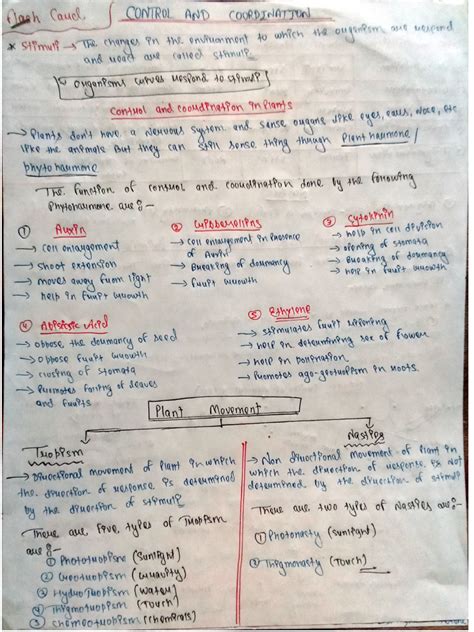 Flash Caud
CONTROL AND COORDINATION
* Stimuli → The changes in the environment to which the organism are respond
and react are called stimuli.
organisms curves respond to stimuli
Control and coordination in plants
→ Plants don't have a nervous system and sense organs like eyes, ears, Nose, etc
like the animals But they can still sense thing through Plant haumone/
phytohaumone
The function of control and coordination done by the following
Phytohaumone are :-
① Auxin
→ Cell enlargement
→ shoot extension
→ moves away from light
→ help in fruit growth
② Gibberellins
→ Cell enlargement in presence
of Auxin
→ Breaking of dormancy
→ fruit growth
③ Cytokinin
→ help in cell division
→ opening of stomata
→ Breaking of dormancy
→ help in fruit growth
④ Abscisic Acid
→ oppose the dormancy of seed
→ oppose fruit growth
→ closing of stomata
→ Promotes falling of leaves
and fruits
⑤ Ethylene
→ stimulates fruit ripening
→ help in determining sex of flower
→ help in pollination
→ Promotes ago-geotropism in roots.
Plant Movement
Tropism
→ Directional movement of plant in which
the direction of response is determined
by the direction of stimuli
There are five types of Tropism
are :-
① Phototropism (sunlight)
② Geotropism (Gravity)
③ HydroTropism (water)
④ Thigmotropism (Touch)
⑤ Chemotropism (chemicals)
Nasties
→ Non directional movement of plant in
which the direction of response is not
determined by the direction of stimuli
There are two types of Nasties are :-
① Photonasty (sunlight)
② Thigmonasty (Touch)